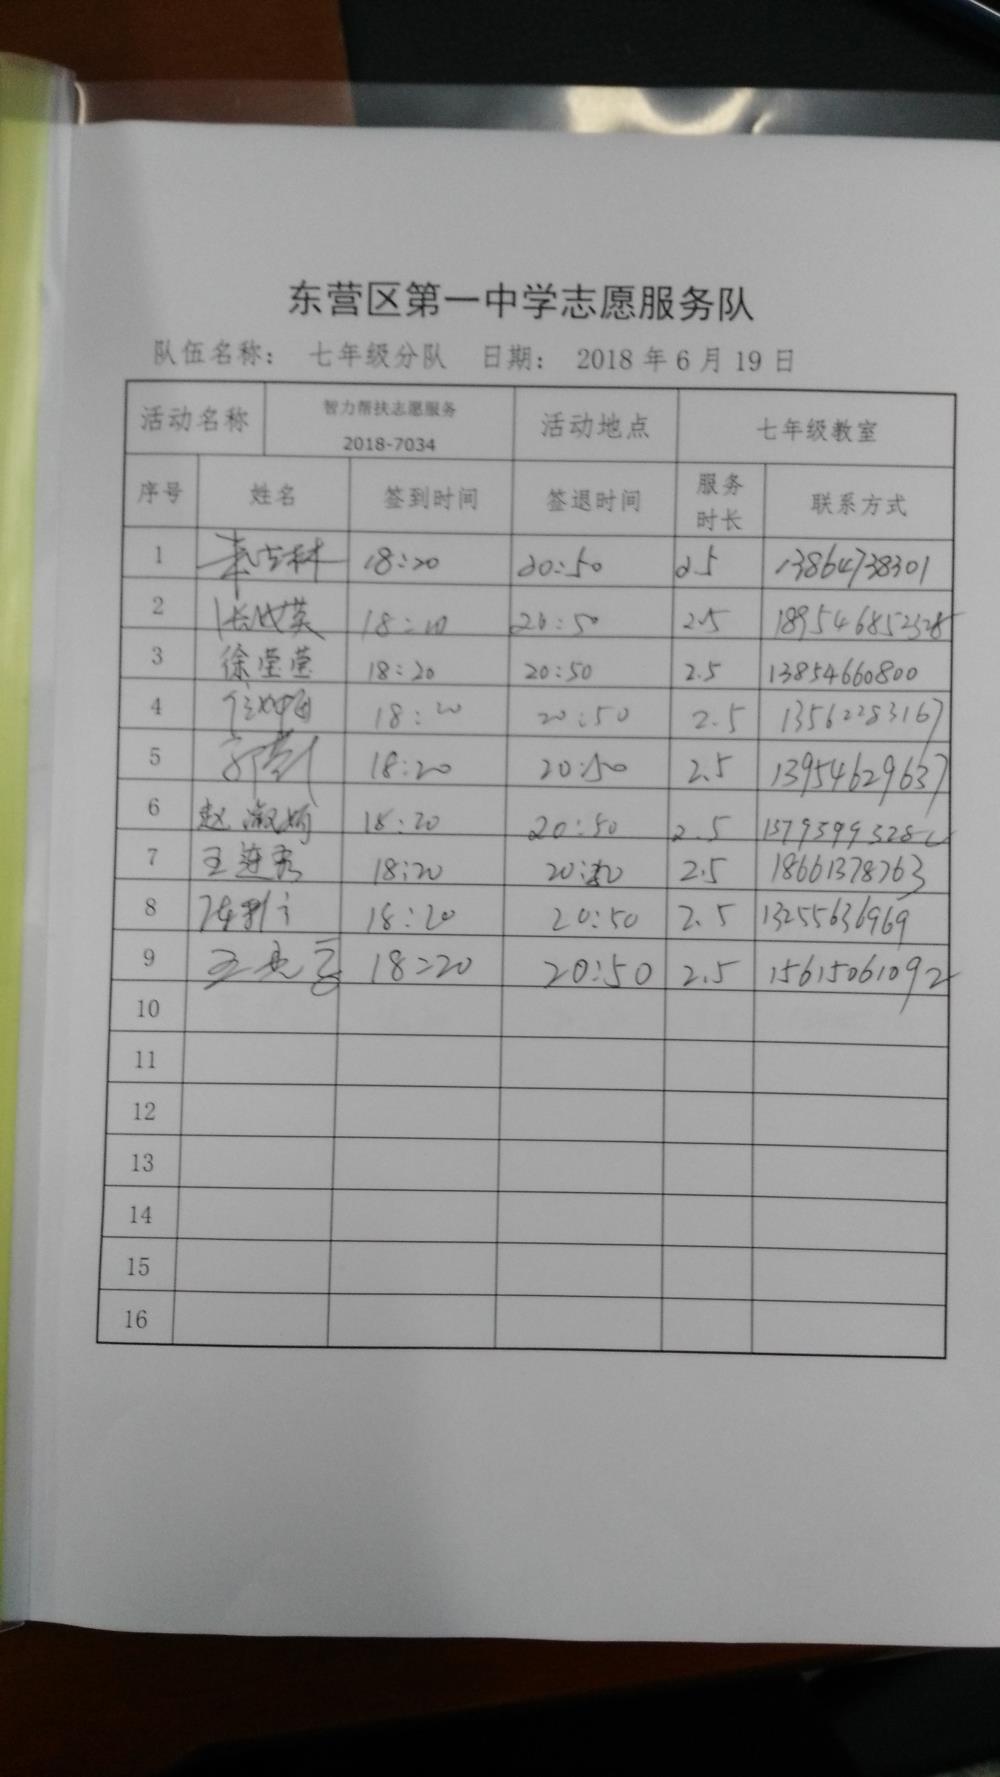 东营区第一中学志愿服务队
队伍名称： 七年级分队 日期： 2018 年 6 月 19 日
活动名称 智力帮扶志愿服务 2018-7034 活动地点 七年级教室
序号 姓名 签到时间 签退时间 服务时长 联系方式
1 18:20 20:50 2.5 13864738301
2 18:20 20:50 2.5
3 徐莹莹 18:20 20:50 2.5 13854660800
4 18:20 20:50 2.5 13562283167
5 18:20 20:50 2.5 13954629637
6 赵淑娟 18:20 20:50 2.5
7 王连秀 18:20 20:50 2.5 18661378763
8 18:20 20:50 2.5 13255636969
9 18:20 20:50 2.5 15615061092
10
11
12
13
14
15
16